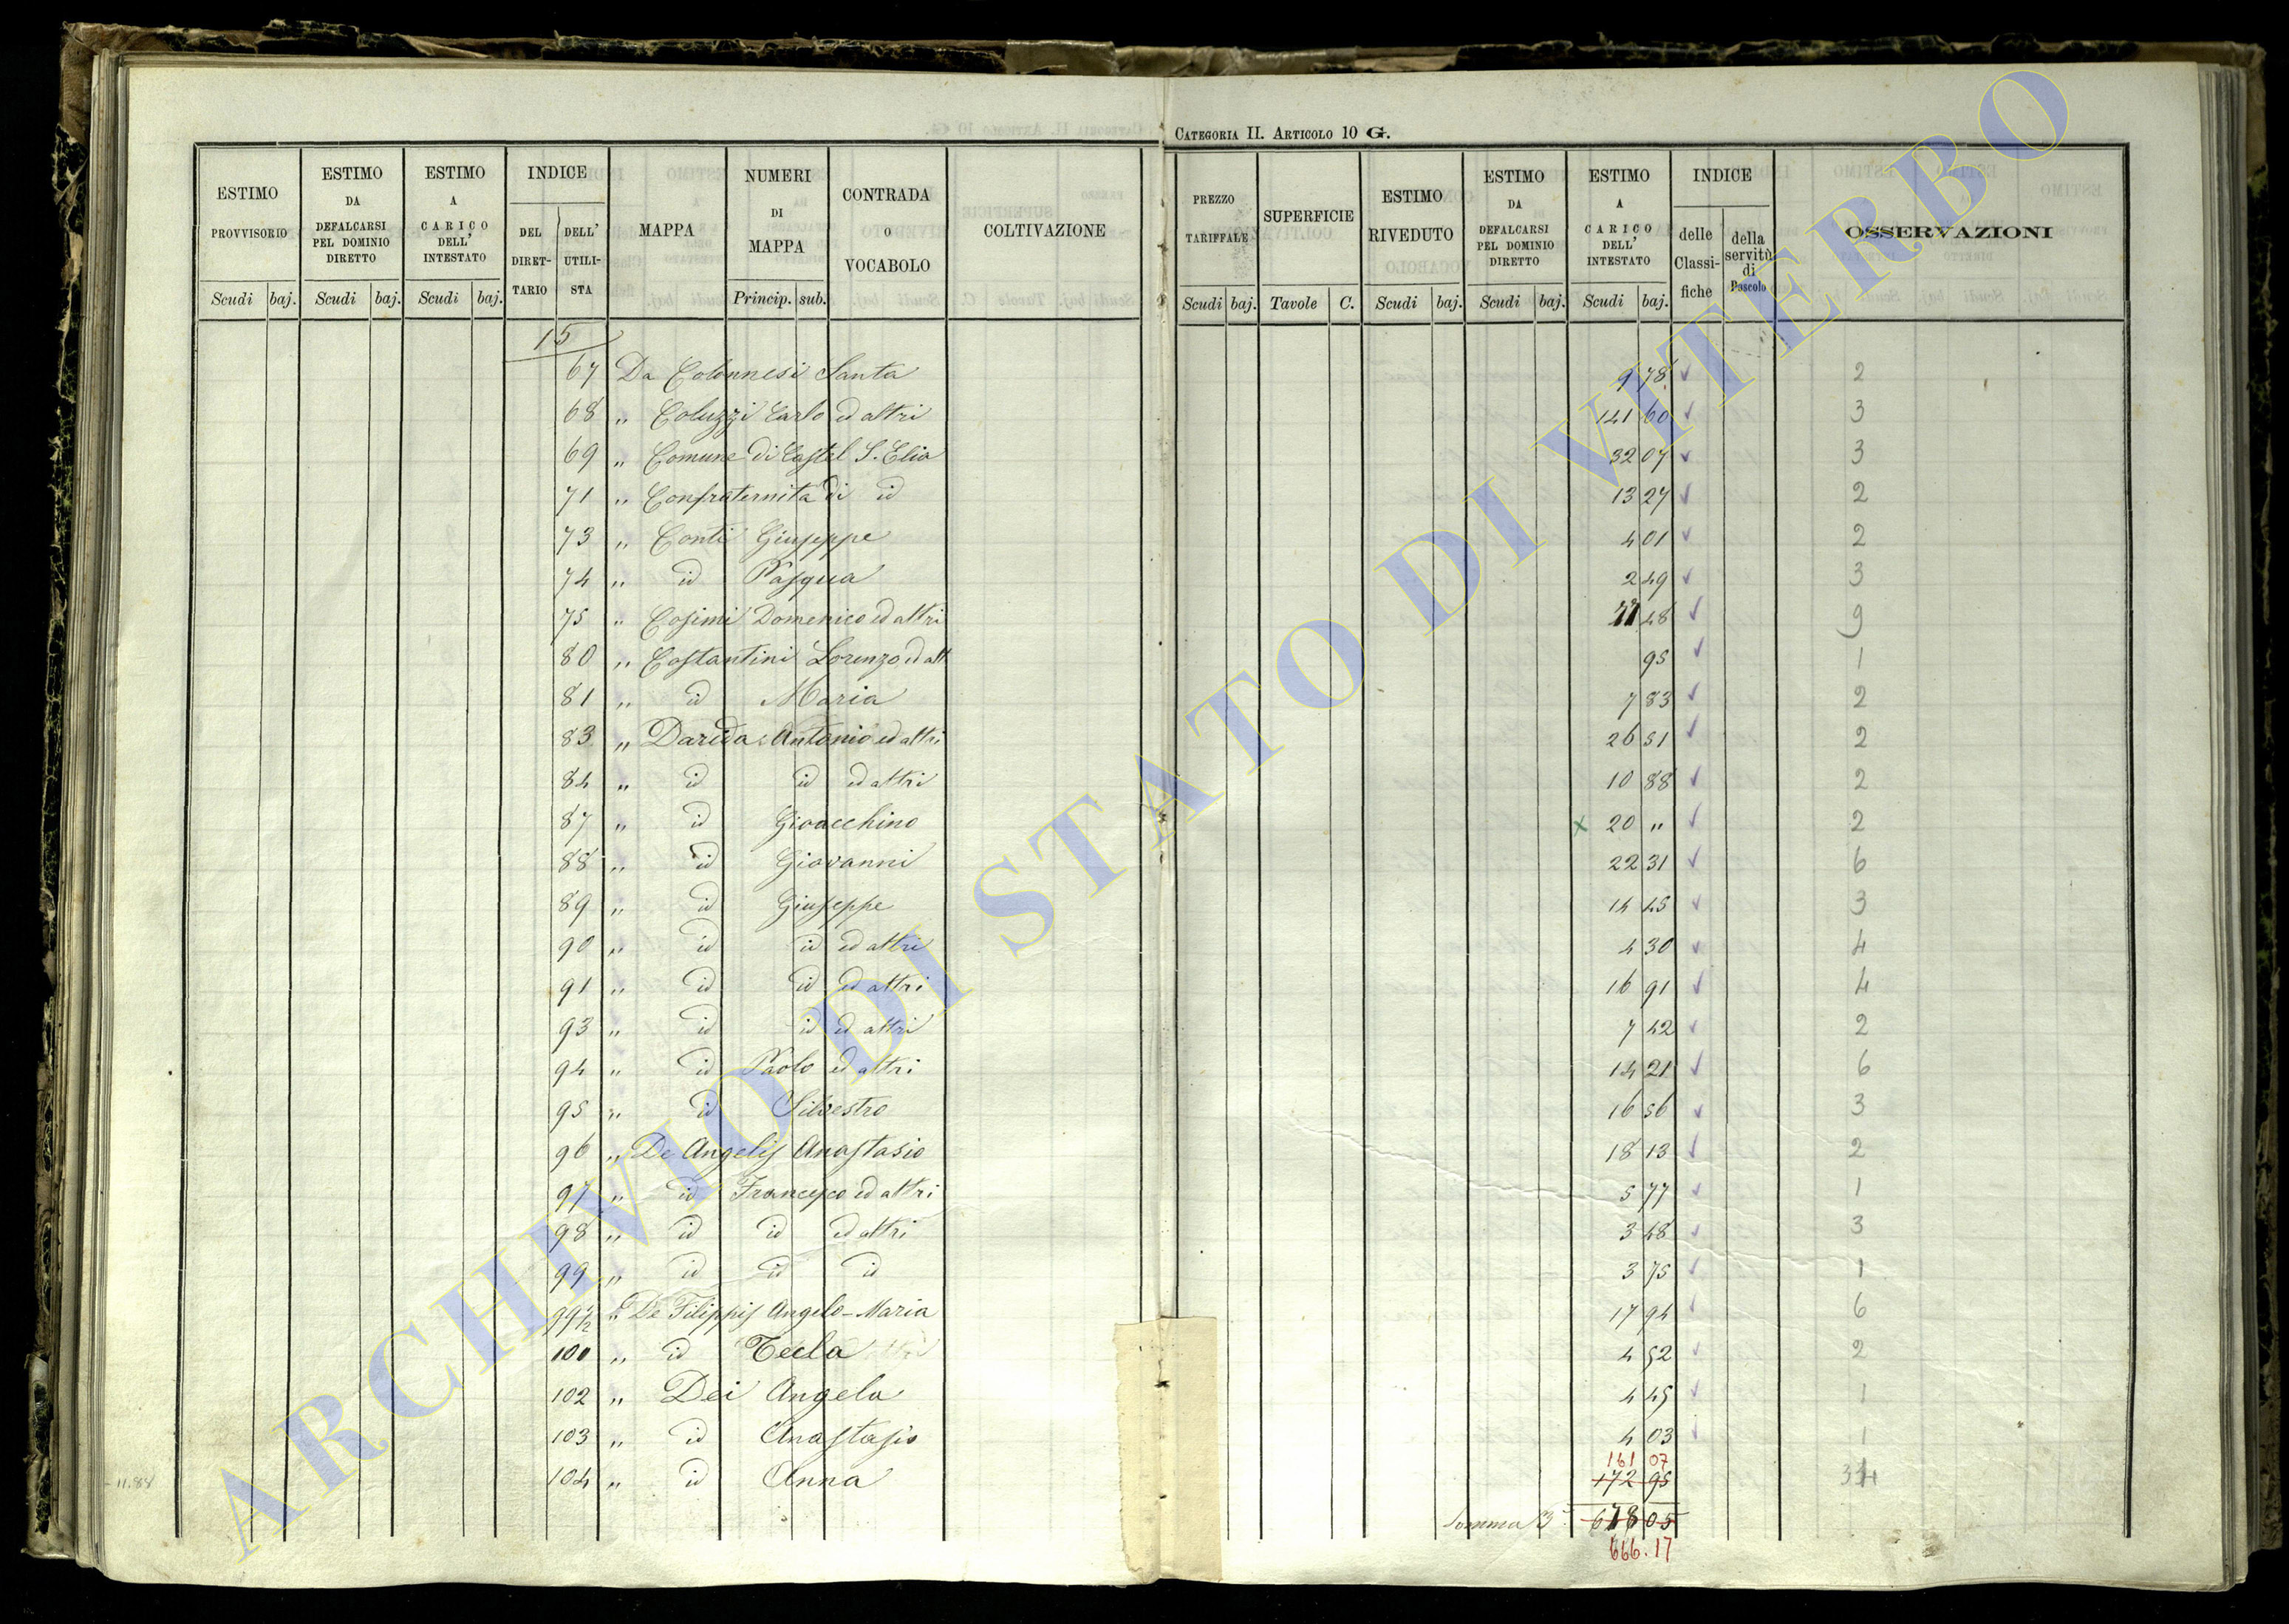 CATEGORIA II. ARTICOLO 10 G.
ESTIMO PROVVISORIO Scudi baj.
ESTIMO DA DEFALCARSI PEL DOMINIO DIRETTO Scudi baj.
ESTIMO A CARICO DELL' INTESTATO Scudi baj.
INDICE DEL DIRETTARIO DELL' UTILISTA
MAPPA
NUMERI DI MAPPA Princip. sub.
CONTRADA O VOCABOLO
COLTIVAZIONE
PREZZO TARIFFALE Scudi baj.
SUPERFICIE Tavole C.
ESTIMO RIVEDUTO Scudi baj.
ESTIMO DA DEFALCARSI PEL DOMINIO DIRETTO Scudi baj.
ESTIMO A CARICO DELL' INTESTATO Scudi baj.
INDICE delle Classifiche della servitù di Pascolo
OSSERVAZIONI
15
67 Da Colonnesi Santa 9 78 2
68 " Coluzzi Carlo ed altri 141 60 3
69 " Comune di Castel S. Elia 32 07 3
71 " Confraternita di id 13 27 2
73 " Conti Giuseppe 4 01 2
74 " id Pasqua 2 49 3
75 " Cosimi Domenico ed altri 48 9
80 " Costantini Lorenzo ed alt 95 1
81 " id Maria 7 83 2
83 " Darida Antonio ed altri 26 51 2
84 " id id ed altri 10 88 2
87 " id Gioacchino x 20 " 2
88 " id Giovanni 22 31 6
89 " id Giuseppe 14 45 3
90 " id id ed altri 4 30 4
91 " id id ed altri 16 91 4
93 " id id ed altri 7 42 2
94 " id Paolo ed altri 14 21 6
95 " id Silvestro 16 56 3
96 " De Angelis Anastasio 18 13 2
97 " id Francesco ed altri 5 77 1
98 " id id ed altri 3 48 3
99 " id id id 3 75 1
99½ " De Filippis Angelo-Maria 17 94 6
100 " id Tecla 4 52 2
102 " Dei Angela 4 45 1
103 " id Anastasio 4 03 1
161 07
- 11.88 104 " id Anna 172 95
Somma 678 05
666.17
ARCHIVIO DI STATO DI VITERBO